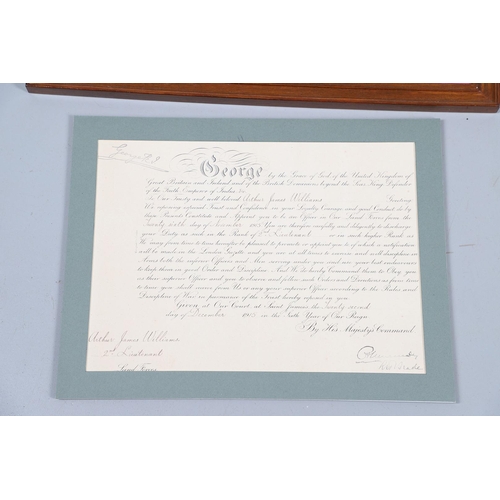 George R.I.
George by the Grace of God of the United Kingdom of
Great Britain and Ireland and of the British Dominions beyond the Seas King Defender
of the Faith Emperor of India &c.
To Our Trusty and well beloved Arthur James Williams Greeting
We reposing especial Trust and Confidence in your Loyalty Courage and good Conduct do by
these Presents Constitute and Appoint you to be an Officer in Our Land Forces from the
day of November 1915 You are therefore carefully and diligently to discharge
your Duty as such in the Rank of 2nd Lieutenant or in such higher Rank as
We may from time to time hereafter be pleased to promote or appoint you to of which a notification
will be made in the London Gazette and you are at all times to exercise and well discipline in
Arms both the inferior Officers and Men serving under you and use your best endeavours
to keep them in good Order and Discipline And We do hereby Command them to Obey you
as their superior Officer and you to observe and follow such Orders and Directions as from time
to time you shall receive from Us or any your superior Officer according to the Rules and
Discipline of War in pursuance of the Trust hereby reposed in you
Given at Our Court at Saint James's the Twenty second
day of December 1915 in the Sixth Year of Our Reign
By His Majesty's Command
Arthur James Williams
2nd Lieutenant
Land Forces